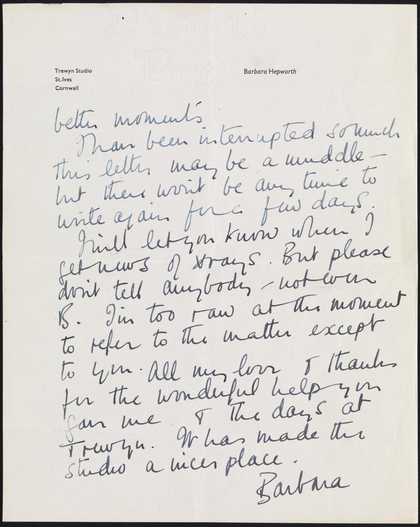 Trewyn Studio
St. Ives
Cornwall
Barbara Hepworth
better moments
I have been interrupted so much
this letter may be a muddle —
but there won't be any time to
write again for a few days.
I will let you know when I
get news of xrays. But please
don't tell anybody — not even
B. I'm too raw at the moment
to refer to the matter except
to you. All my love & thanks
for the wonderful help you
gave me & the days at
Trewyn. It has made the
studio a nicer place.
Barbara